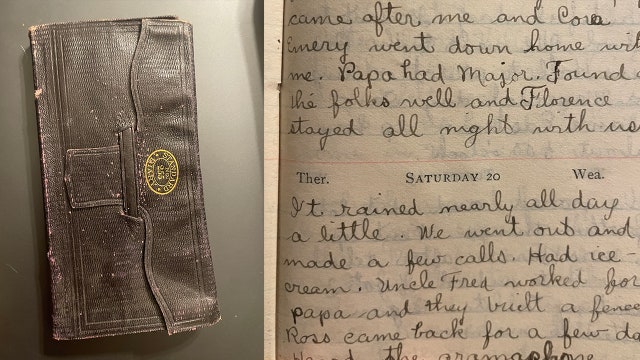 STANDARD
DIARY
came after me and Cora
Emery went down home with
me. Papa had Major. Found
the folks well and Florence
stayed all night with us
Ther. SATURDAY 20 Wea.
It rained nearly all day
a little. We went out and
made a few calls. Had ice-
cream. Uncle Fred worked for
papa and they built a fence
Ross came back for a few da
the gramaphone